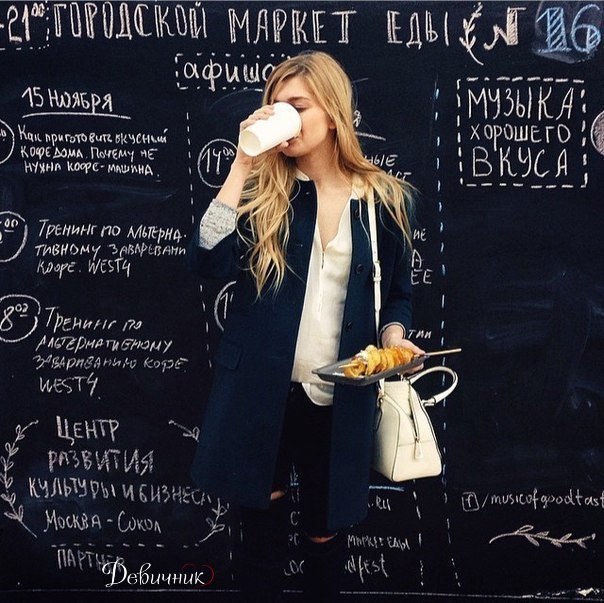 -21:00 ГОРОДСКОЙ МАРКЕТ ЕДЫ № 16
афиша
15 НОЯБРЯ
КАК ПРИГОТОВИТЬ ВКУСНЫЙ
КОФЕ ДОМА. ПОЧЕМУ НЕ
НУЖНА КОФЕ-МАШИНА.
ТРЕНИНГ ПО АЛЬТЕРНА
ТИВНОМУ ЗАВАРИВАНИ
КОФЕ. WEST4
ТРЕНИНГ ПО
АЛЬТЕРНАТИВНОМУ
ЗАВАРИВАНИЮ КОФЕ.
WEST4.
ЦЕНТР
РАЗВИТИЯ
КУЛЬТУРЫ И БИЗНЕСА
МОСКВА-СОКОЛ
ПАРТНЕР
МУЗЫКА
ХОРОШЕГО
ВКУСА
f/musicofgoodtast
.RU
МАРКЕТ ЕДЫ
dfest
Девичник